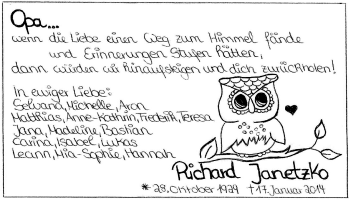 Opa...
wenn die Liebe einen Weg zum Himmel fände
und Erinnerungen Stufen hätten,
dann würden wir hinaufsteigen und dich zurückholen!
In ewiger Liebe:
Selvana, Michelle, Aron
Matthias, Anne-Kathrin, Frederik, Teresa
Jana, Madeline, Bastian
Carina, Isabel, Lukas
Leann, Mia-Sophie, Hannah
Richard Janetzko
* 28. Oktober 1929 † 17. Januar 2014